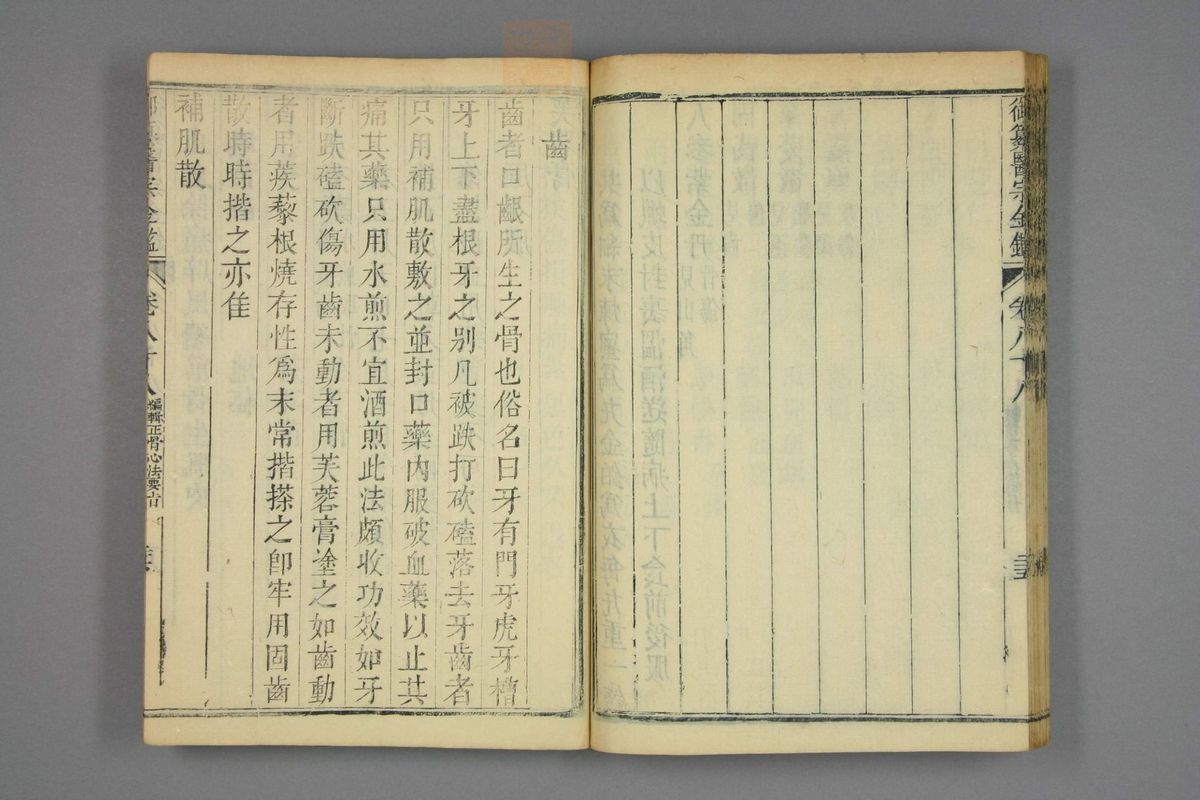 御纂醫宗金鑑 卷八十八
齒
齒者口齦所生之骨也俗名曰牙有門牙虎牙槽
牙上下盡根牙之别凡被跌打砍磕落去牙齒者
只用補肌散敷之並封口藥内服破血藥以止其
痛其藥只用水煎不宜酒煎此法頗收功效如牙
斷跌磕砍傷牙齒未動者用芙蓉膏塗之如齒動
者用蒺藜根燒存性爲末常揩搽之卽牢用固齒
散時時揩之亦佳
補肌散
御纂醫宗金鑑 卷八十八 編輯正骨心法要旨